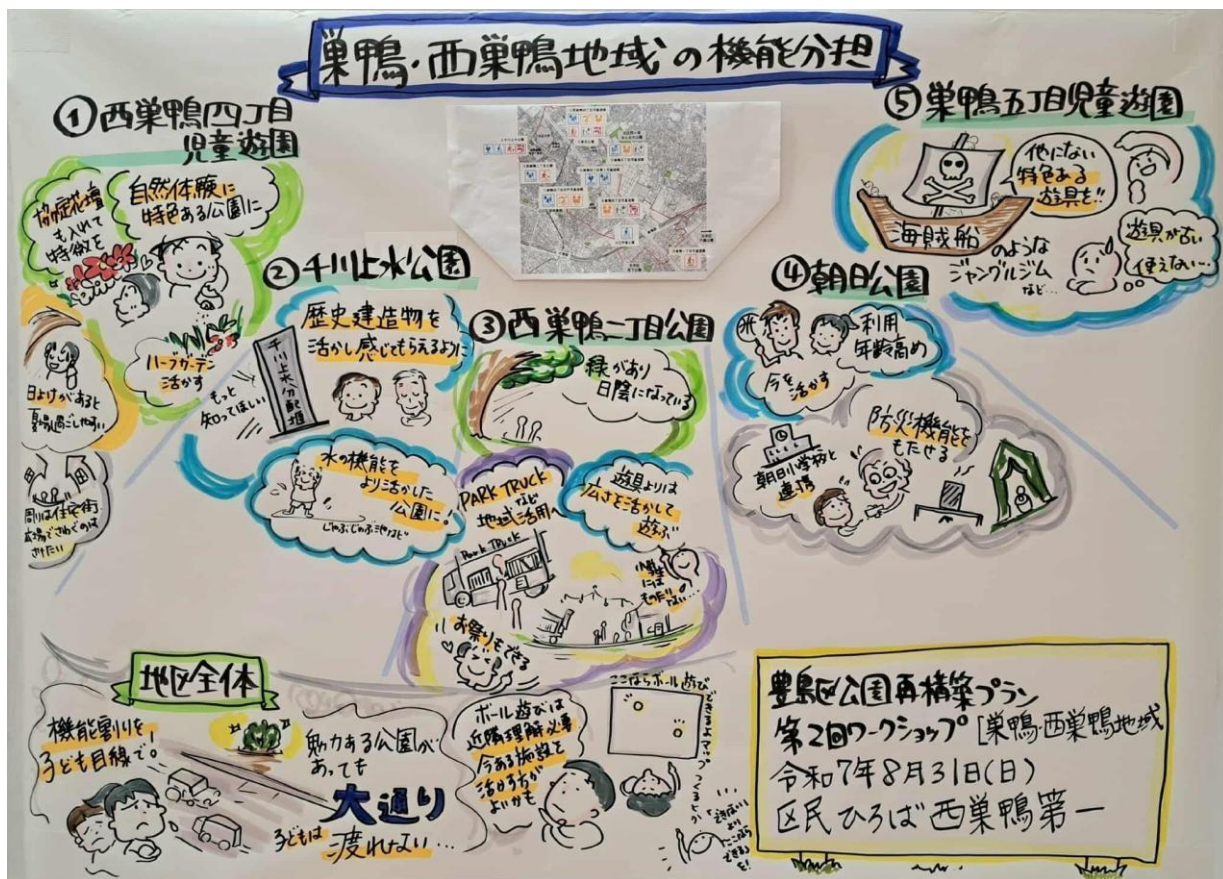 巣鴨・西巣鴨地域の機能分担
①西巣鴨四丁目
児童遊園
協定花壇
も入れて
特徴を
自然体験に
特色ある公園に
ハーブガーデン
活かす
日よけがあると
夏場過ごしやすい
周りは住宅街
広場でさわぐのは
さけたい
②千川上水公園
歴史建造物を
活かし感じてもらえるように
千川上水分配堰
もっと
知ってほしい
水の機能を
より活かした
公園に!
じゃぶじゃぶ池など
③西巣鴨二丁目公園
緑があり
日陰になっている
PARK TRUCK
など
地域活用へ
Park TRUCK
お祭りもできる
遊具よりは
広さを活かして
遊ぶ
小学生には
ものたりない…
④朝日公園
利用
年齢高め
今を活かす
防災機能を
もたせる
朝日小学校と
連携
⑤巣鴨五丁目児童遊園
他にない
特色ある
遊具を!!
海賊船
のような
ジャングルジム
など…
遊具が古い
使えない…
地区全体
機能割りを
子ども目線で。
魅力ある公園が
あっても
大通り
子どもは渡れない…
ボール遊びは
近隣理解必要
今ある施設を
活かす方が
よいかも
ここならボール遊び
できるよマップ
つくるとか
「できない」
より
「ここなら
できる」を!
豊島区公園再構築プラン
第2回ワークショップ[巣鴨・西巣鴨地域
令和7年8月31日(日)
区民ひろば西巣鴨第一